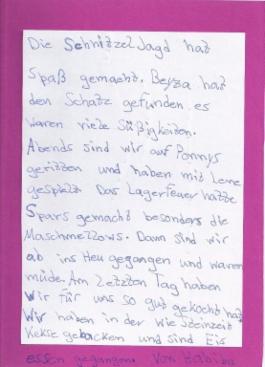 Die Schnitzel Jagd hat
Spaß gemacht. Beyza hat
den Schatz gefunden es
waren viele Süßigkeiten.
Abends sind wir auf Ponnys
geritten und haben mit Lene
gespielt Das Lagerfeuer hatte
Spars gemacht besonders die
Maschmellows. Dann sind wir
ab ins Heu gegangen und waren
müde. Am letzten Tag haben
Wir für uns so gut gekocht hat
Wir haben in der wie Steinzeit
Kekse gebacken und sind Eis
essen gegangen. Von Habiba